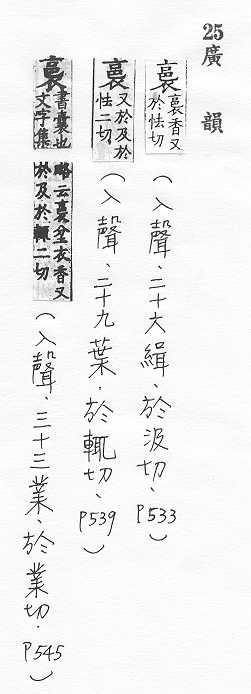 25 廣韻
裛 裛香又於怯切
(入聲、二十六緝、於汲切、P533)
裛 又於及於怯二切
(入聲、二十九葉、於輒切、P539)
裛 書囊也文字集略云裛坌衣香又於及於輒二切
(入聲、三十三業、於業切、P545)